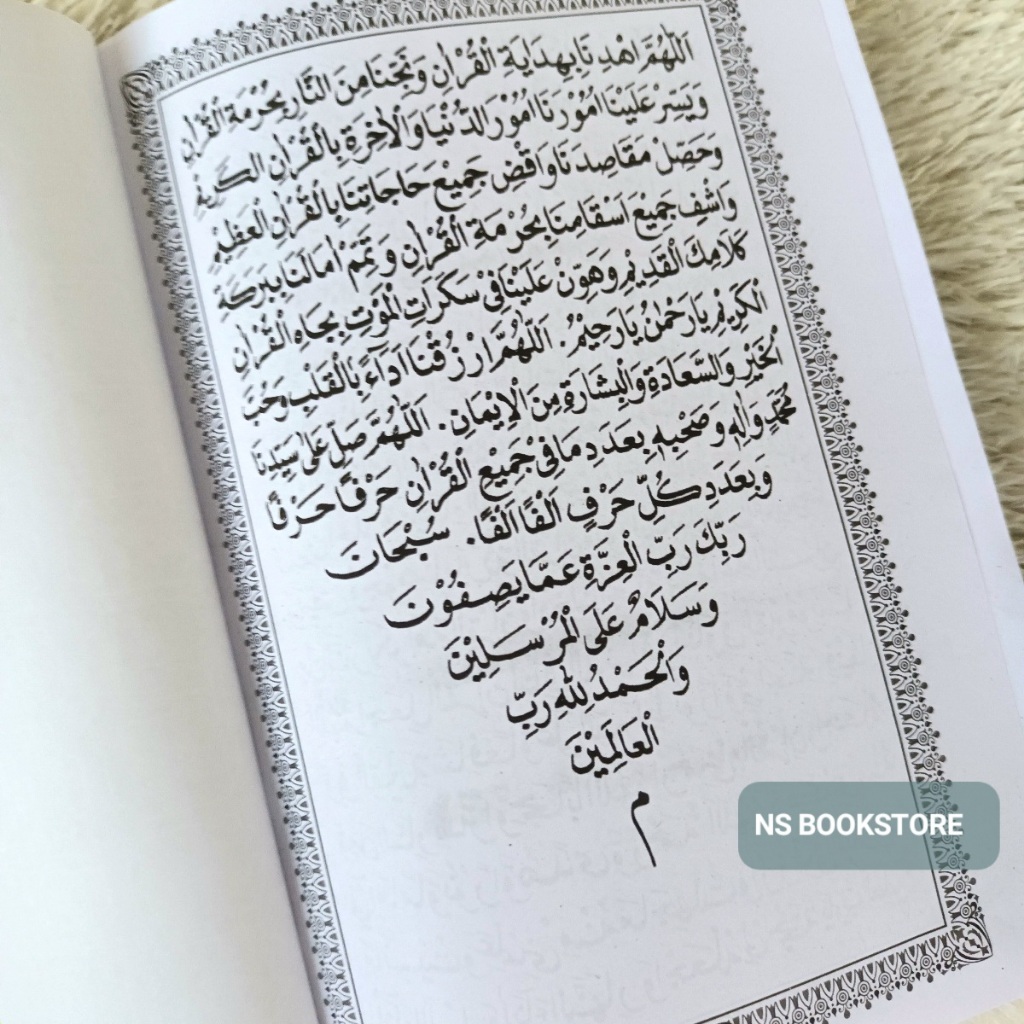 اَللّٰهُمَّ اهْدِنَا بِهِدَايَةِ الْقُرْاٰنِ وَنَجِّنَا مِنَ النَّارِ بِحُرْمَةِ الْقُرْاٰنِ
وَيَسِّرْ عَلَيْنَا اُمُوْرَنَا اُمُوْرَ الدُّنْيَا وَالْاٰخِرَةِ بِالْقُرْاٰنِ الْكَرِيْمِ
وَحَصِّلْ مَقَاصِدَنَا وَاقْضِ جَمِيْعَ حَاجَاتِنَا بِالْقُرْاٰنِ الْعَظِيْمِ
وَاشْفِ جَمِيْعَ اَسْقَامِنَا بِحُرْمَةِ الْقُرْاٰنِ وَتَمِّمْ اٰمَالَنَا بِبَرَكَةِ
كَلَامِكَ الْقَدِيْمِ وَهَوِّنْ عَلَيْنَا فِيْ سَكَرَاتِ الْمَوْتِ بِجَاهِ الْقُرْاٰنِ
الْكَرِيْمِ يَارَحْمٰنُ يَارَحِيْمُ. اَللّٰهُمَّ ارْزُقْنَا اَدَآءً بِالْقَلْبِ وَحُبَّ
الْخَيْرِ وَالسَّعَادَةِ وَالْبِشَارَةِ مِنَ الْاِيْمَانِ. اَللّٰهُمَّ صَلِّ عَلٰى سَيِّدِنَا
مُحَمَّدٍ وَاٰلِهٖ وَصَحْبِهٖ بِعَدَدِ مَا فِيْ جَمِيْعِ الْقُرْاٰنِ حَرْفًا حَرْفًا
وَبِعَدَدِ كُلِّ حَرْفٍ اَلْفًا اَلْفًا. سُبْحَانَ
رَبِّكَ رَبِّ الْعِزَّةِ عَمَّا يَصِفُوْنَ
وَسَلَامٌ عَلَى الْمُرْسَلِيْنَ
وَالْحَمْدُ لِلّٰهِ رَبِّ
الْعَالَمِيْنَ
م
NS BOOKSTORE